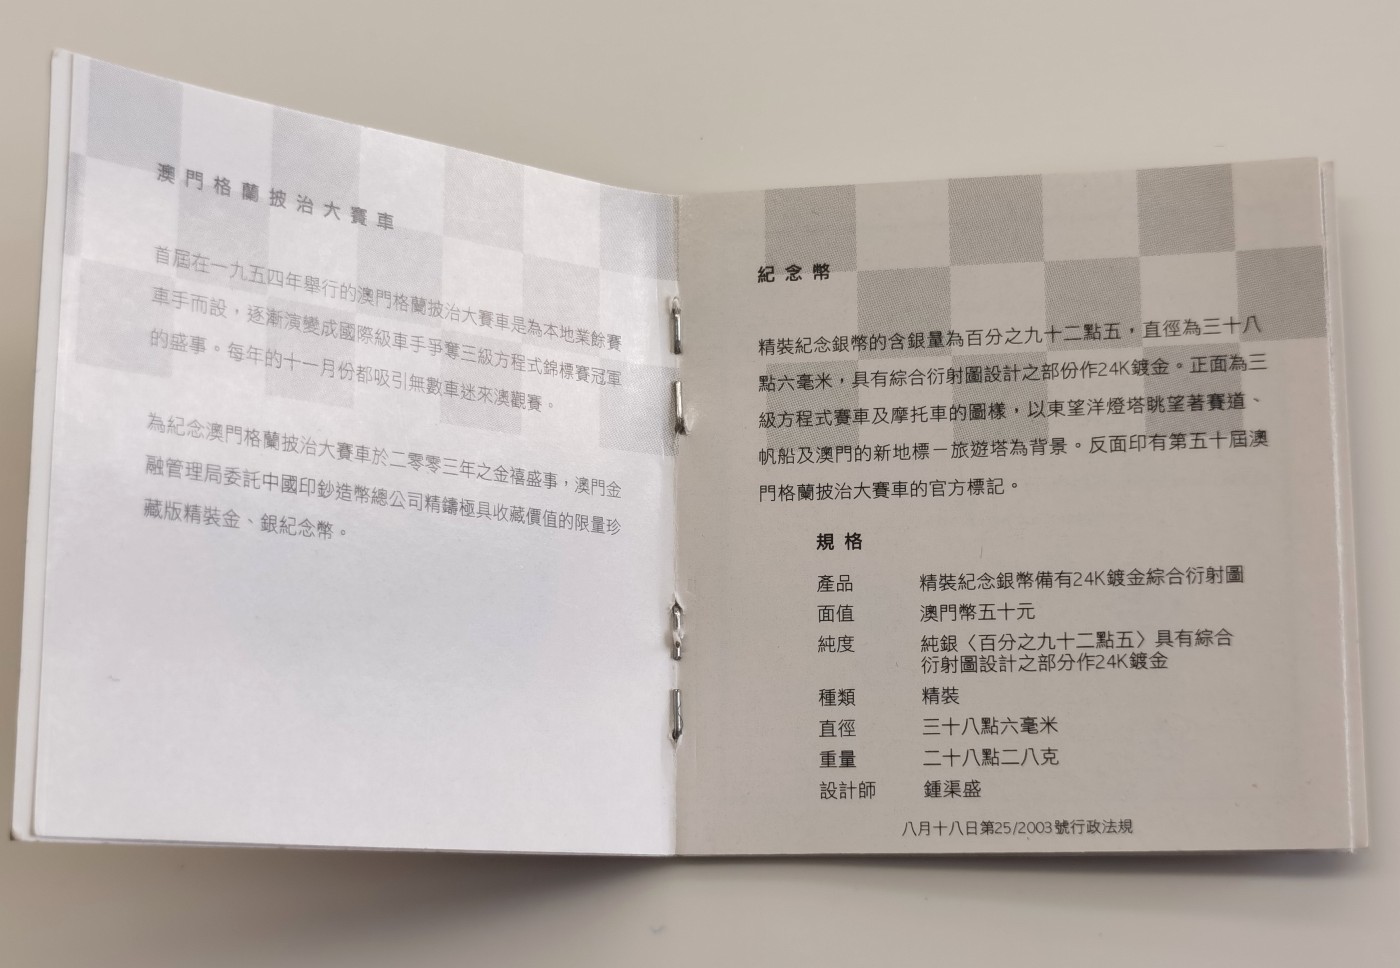 澳門格蘭披治大賽車
首屆在一九五四年舉行的澳門格蘭披治大賽車是為本地業餘賽
車手而設，逐漸演變成國際級車手爭奪三級方程式錦標賽冠軍
的盛事。每年的十一月份都吸引無數車迷來澳觀賽。
為紀念澳門格蘭披治大賽車於二零零三年之金禧盛事，澳門金
融管理局委託中國印鈔造幣總公司精鑄極具收藏價值的限量珍
藏版精裝金、銀紀念幣。
紀念幣
精裝紀念銀幣的含銀量為百分之九十二點五，直徑為三十八
點六毫米，具有綜合衍射圖設計之部份作24K鍍金。正面為三
級方程式賽車及摩托車的圖樣，以東望洋燈塔眺望著賽道、
帆船及澳門的新地標－旅遊塔為背景。反面印有第五十屆澳
門格蘭披治大賽車的官方標記。
規格
產品 精裝紀念銀幣備有24K鍍金綜合衍射圖
面值 澳門幣五十元
純度 純銀〈百分之九十二點五〉具有綜合
衍射圖設計之部分作24K鍍金
種類 精裝
直徑 三十八點六毫米
重量 二十八點二八克
設計師 鍾渠盛
八月十八日第25/2003號行政法規